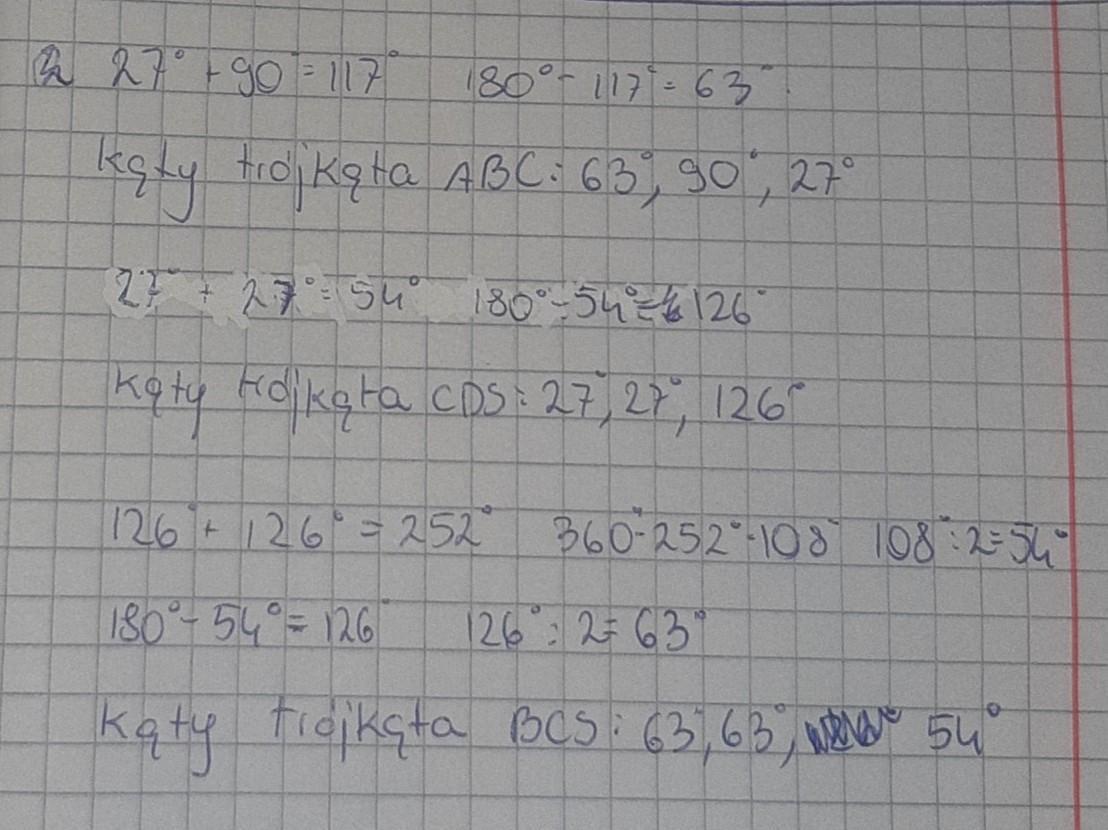 2 27° + 90° = 117° 180° - 117° = 63°
kąty trójkąta ABC: 63°, 90°, 27°
27° + 27° = 54° 180° - 54° = 126°
kąty trójkąta CDS: 27°, 27°, 126°
126° + 126° = 252° 360° - 252° = 108° 108° : 2 = 54°
180° - 54° = 126° 126° : 2 = 63°
kąty trójkąta BCS: 63°, 63°, 54°